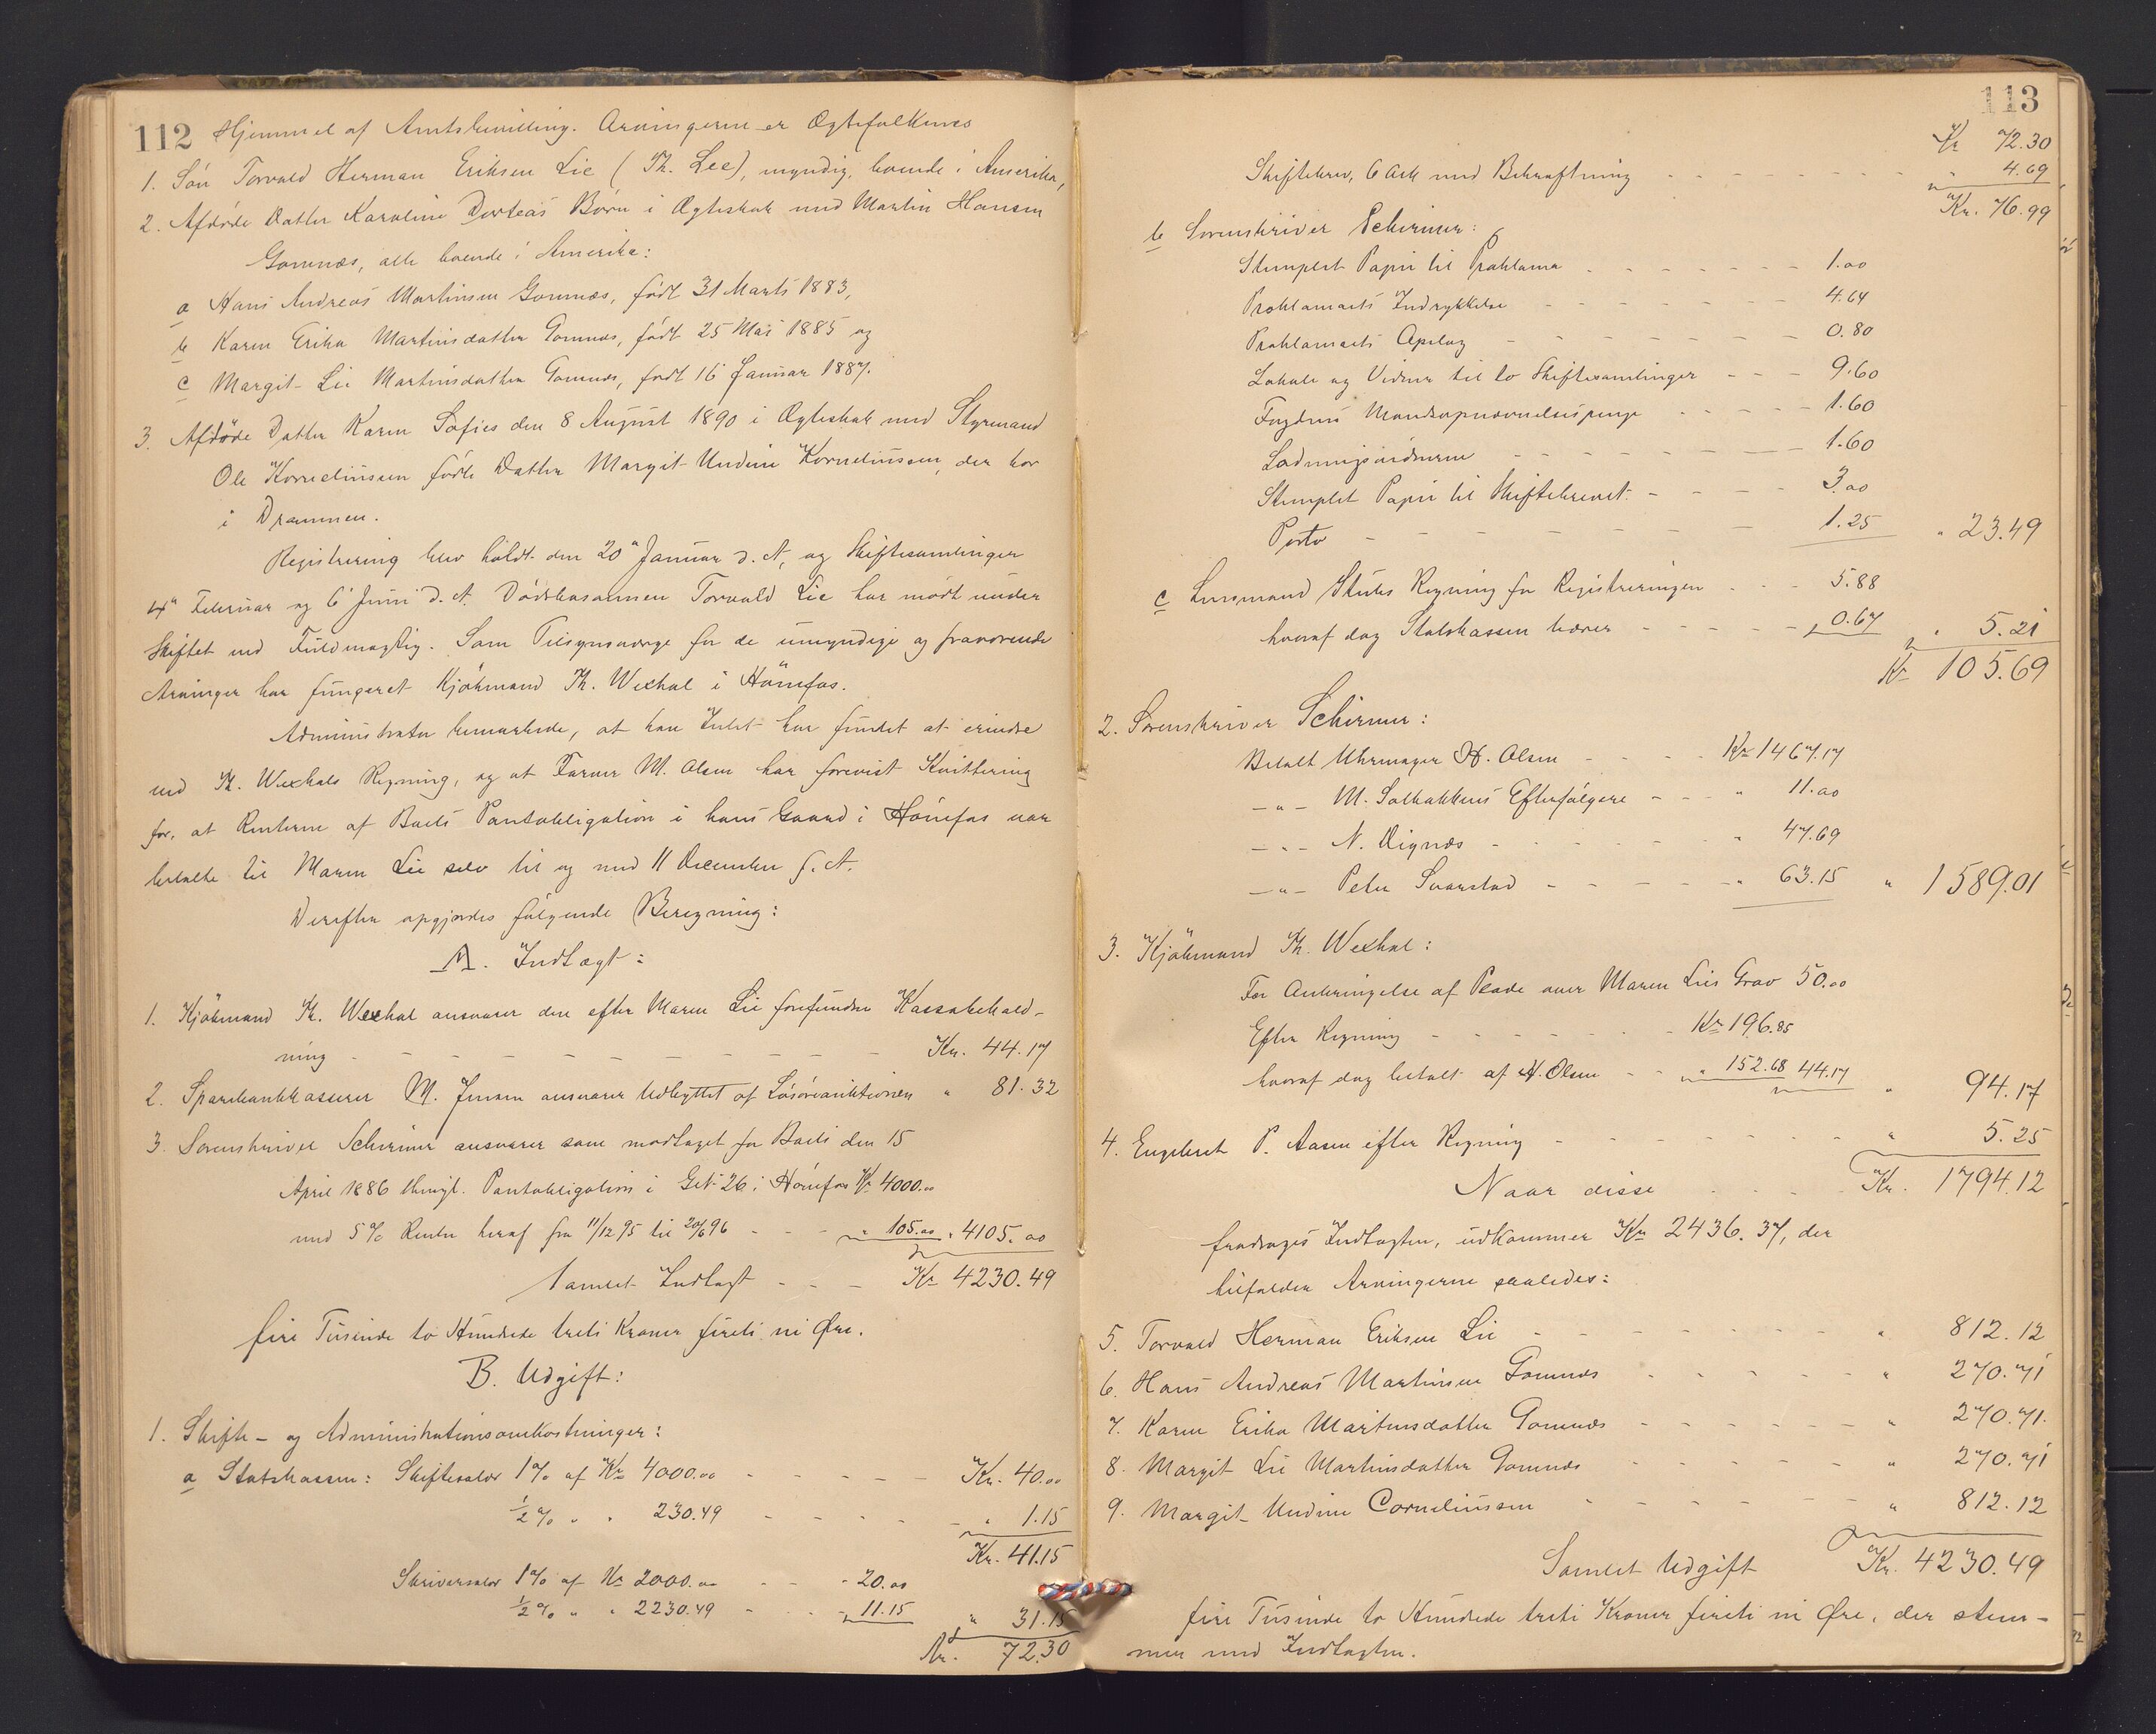 112 Hjemmel af Amtsbevilling. Arvingerne er Ægtefolkenes
1. Søn Torvald Herman Eriksen Lie (Th. Lee), myndig, boende i Amerika,
2. Afdøde Datter Karoline Dorteas Børn i Ægteskab med Martin Hansen
Gomnæs, alle boende i Amerika:
a Hans Andreas Martinsen Gomnæs, født 31 Marts 1883,
b Karen Erika Martinsdatter Gomnæs, født 25 Mai 1885 og
c Margit Lie Martinsdatter Gomnæs, født 16 Januar 1887.
3. Afdøde Datter Karen Sofies den 8 August 1890 i Ægteskab med Styrmand
Ole Korneliussen fødte Datter Margit Undine Korneliussen, der bor
i Drammen.
Registrering blev holdt den 20de Januar d. A, og Skiftesamlinger
4de Februar og 6 Juni d. A. Dødsbosønnen Torvald Lie har mødt under
Skiftet ved Fuldmægtig. Som Tilsynsværge for de umyndige og fraværende
Arvinger har fungeret Kjøbmand Th. Wexhal i Hønefos.
Administrator bemærkede, at han Intet har fundet at erindre
ved Th. Wexhals Regning, og at Farver M. Olsen har forevist Kvittering
for, at Renterne af Boets Pantobligation i hans Gaard i Hønefos var
betalte til Maren Lie selv til og med 11 December f. A.
Derefter opgjordes følgende Beregning:
A. Indtægt:
1. Kjøbmand Th. Wexhal ansvarer den efter Maren Lie forefundne Kassabehold-
ning - - - - - - - - - Kr. 44.17
2. Sparebankkasserer M. Jensen ansvarer Udbyttet af Løsøreauktionen " 81.32
3. Sorenskriver Schirmer ansvarer som modtaget for Boets den 15
April 1886 thingl. Pantobligation i Gt. 26 i Hønefos Kr 4000.00
med 5 % Renter heraf fra 11/12 95 til 20/6 96 - - - " 105.00 " 4105.00
Samlet Indtægt - - - Kr 4230.49
fire Tusinde to Hundrede treti Kroner fireti ni Øre.
B. Udgift:
1. Skifte- og Administrationsomkostninger:
a Statskassen: Skiftesalær 1 % af Kr 4000.00 - - - - - Kr. 40.00
½ % " " 230.49 - - - - - " 1.15
Kr. 41.15
Skriversalær 1 % af Kr 2000.00 - - - 20.00
½ % " " 2230.49 - - - 11.15 " 31.15
Kr. 72.30
113
Kr 72.30
Skiftebrev, 6 Ark med Bekræftning - - - - - - - - " 4.69
Kr. 76.99
b Sorenskriver Schirmer:
Stemplet Papir til Proklama - - - - - - - 1.00
Proklamaets Indrykkelse - - - - - - - 4.64
Proklamaets Opslag - - - - - - - 0.80
Lokale og Vidner til to Skiftesamlinger - - - 9.60
Fogdens Mandsopnævnelsespenge - - - - - 1.60
Ladningsvidnerne - - - - - - - 1.60
Stemplet Papir til Skiftebrevet - - - - 3.00
Porto - - - - - - - 1.25 " 23.49
c Lensmand Stubs Regning for Registreringen - - - 5.88
hvoraf dog Statskassen bærer - - - - - " 0.67 " 5.21
Kr 105.69
2. Sorenskriver Schirmer:
Betalt Uhrmager H. Olsen - - - - Kr 1467.17
-"- M. Solbakkens Efterfølgere - - - " 11.00
-"- N. Vignæs - - - - - " 47.69
-"- Peter Svarstad - - - - - " 63.15 " 1589.01
3. Kjøbmand Th. Wexhal:
For Anbringelse af Plade over Maren Lies Grav 50.00
Efter Regning - - - - - - - Kr 196.85
hvoraf dog betalt af H. Olsen - - " 152.68 44.17 " 94.17
4. Engebret P. Aasen efter Regning - - - - - - - " 5.25
Naar disse - - - - Kr. 1794.12
fradrages Indtægten, udkommer Kr 2436.37, der
tilfalder Arvingerne saaledes:
5. Torvald Herman Eriksen Lie - - - - - - - " 812.12
6. Hans Andreas Martinsen Gomnæs - - - - - " 270.71
7. Karen Erika Martinsdatter Gomnæs - - - - - " 270.71.
8. Margit Lie Martinsdatter Gomnæs - - - - - " 270.71
9. Margit Undine Corneliussen - - - - - - " 812.12
Samlet Udgift Kr. 4230.49
fire Tusinde to Hundrede treti Kroner fireti ni Øre, der stem-
mer med Indtægten.